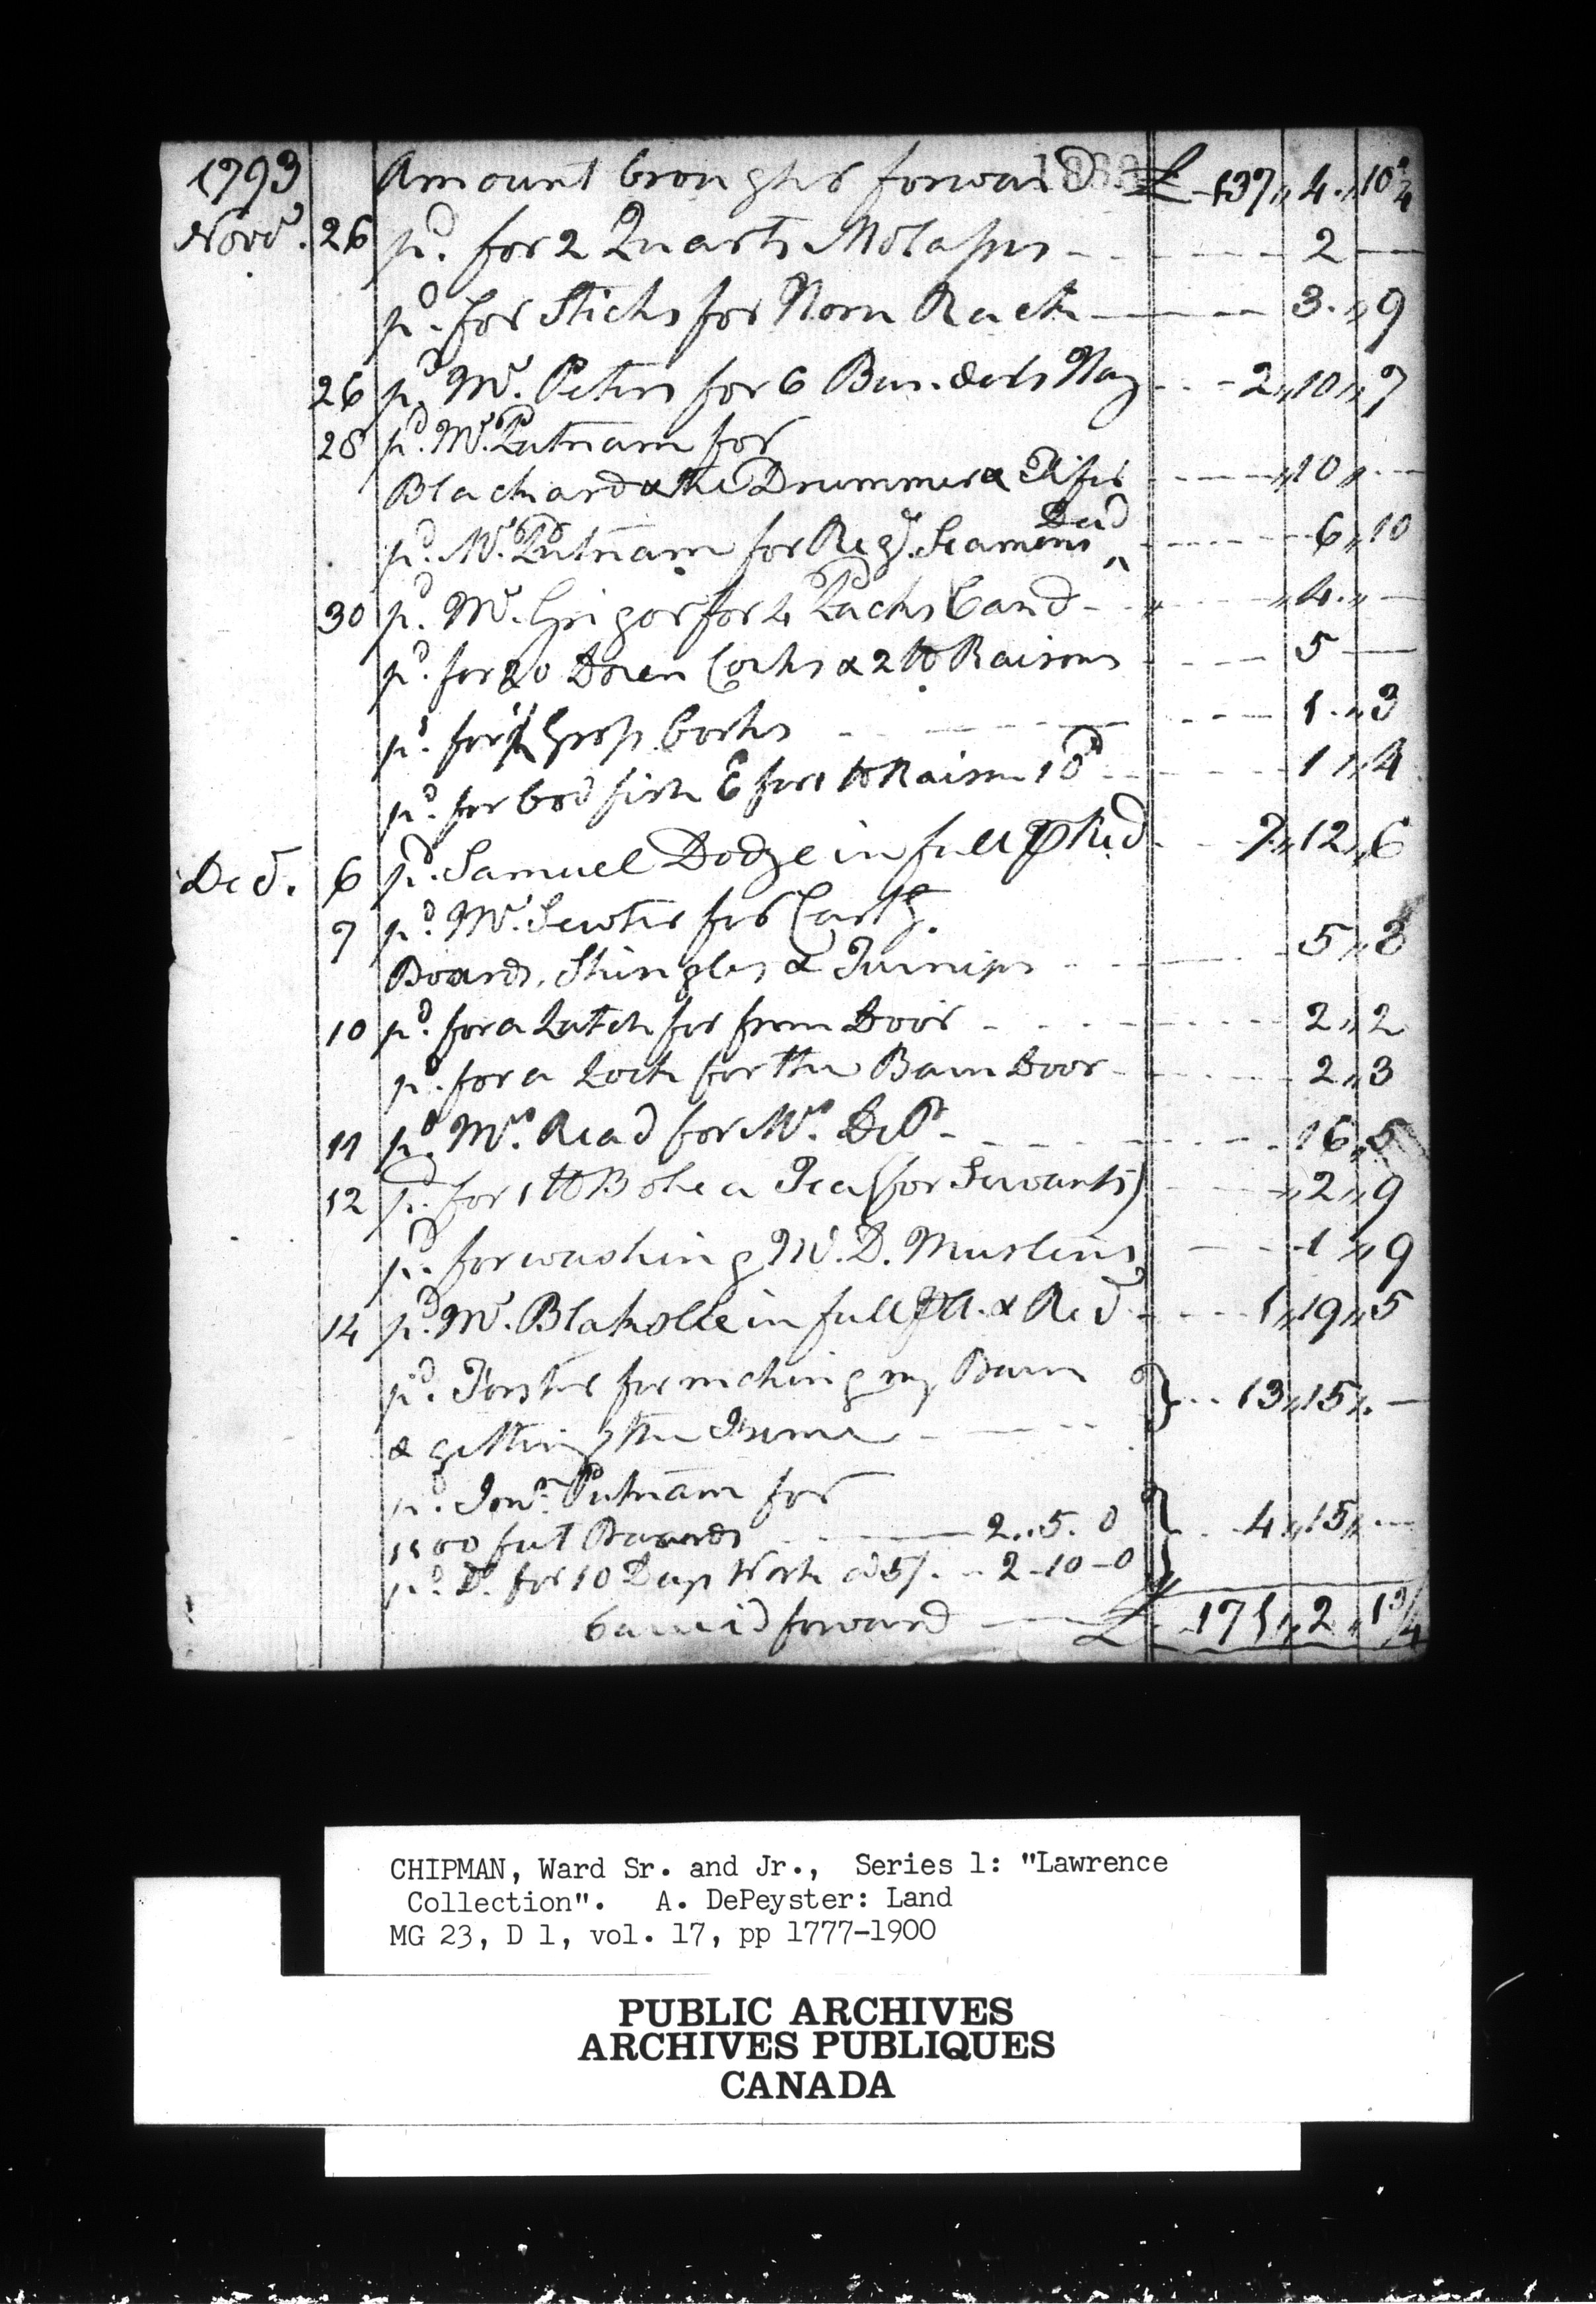 1793 Amount brought forward £ 137 „ 4 „ 10 3/4
Novr. 26 pd. for 2 Quarts Molasses 2 —
pd. for Sticks for Rack 3 „ 9
26 pd. Mr. Peters for 6 Bundels Hay 2 „ 10 „ 7
28 pd. Mr. Putnam for
& the Drummer & Fifer 10 „ —
pd. Mr. Putnam for Regr. Seamens Deed 6 „ 10
30 pd. Mr. Grigor for 4 Packs Card 4 „ —
pd. for 20 Dozen Corks & 2 lb Raisons 5 —
pd. for Gross Corks 1 „ 3
pd. for Cod fish 6 for 1 lb Raison 10d 1 „ 4
Decr. 6 pd. Samuel Dodge in full p Recd 7 „ 12 „ 6
7 pd. Mr. for Cartg.
Boards, Shingles & Turnips 5 „ 3
10 pd. for a Latch for from Door 2 „ 2
pd. for a Lock for the Barn Door 2 „ 3
11 pd. Mrs. Read for Mrs. DeP 16 „ 5
12 pd. for 1 lb Bohea Tea (for Servants) 2 „ 9
pd. for washing M. D. Muslins 1 „ 9
14 pd. Mr. Blakslee in full p A. & Recd 1 „ 19 „ 5
pd. Forster for making my Barn
& getting the Frame 13 „ 15 „ —
pd. Jonn. Putnam for
1500 feet Boards 2 „ 5 . 0
pd. Do. for 10 Days Work @ 5/. 2 - 10 - 0 4 „ 15 „ —
Carried forward £ 171 „ 2 „ 1 3/4
CHIPMAN, Ward Sr. and Jr., Series 1: "Lawrence
Collection". A. DePeyster: Land
MG 23, D 1, vol. 17, pp 1777-1900
PUBLIC ARCHIVES
ARCHIVES PUBLIQUES
CANADA